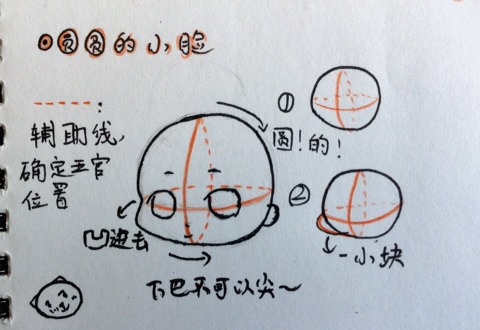 圆圆的小脸
:
辅助线,
确定五官
位置
①
圆!的!
②
凹进去
一小块
下巴不可以尖~